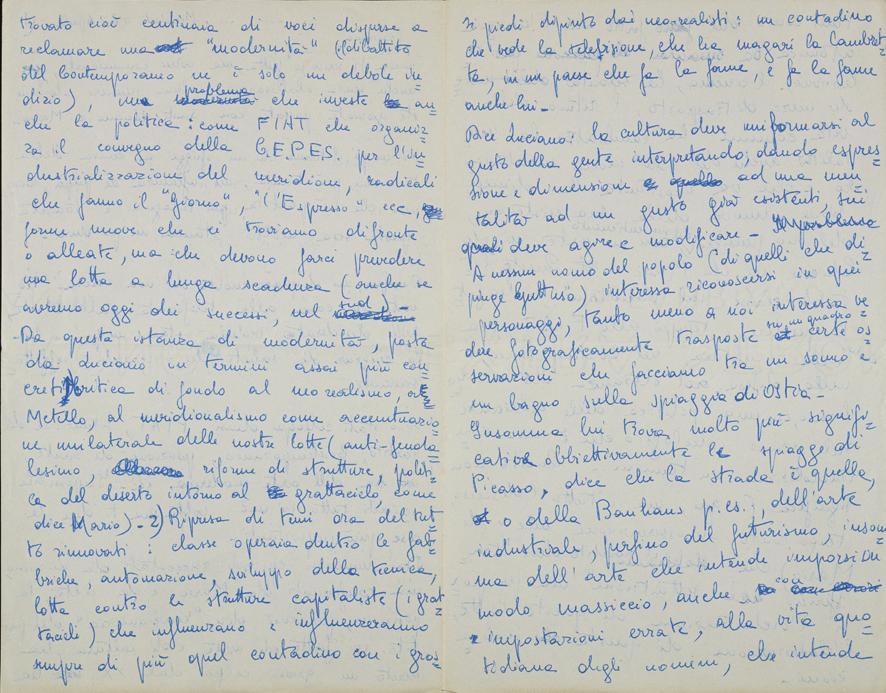 trovato cioè centinaia di voci disperse a
reclamare una "modernità" (il dibattito
del Contemporaneo ne è solo un debole in=
dizio), un problema che investe an=
che la politica: come FIAT che organiz=
za il convegno della C.E.P.E.S. per l'in=
dustrializzazione del meridione, radicali
che fanno il "Giorno", "l'Espresso" ecc,
forme nuove che ci troviamo di fronte
o alleate, ma che devono farci prevedere
una lotta a lunga scadenza (anche se
avremo oggi dei successi, nel sud) -
- Da questa istanza di modernità, posta
da Luciano in termini assai più con=
creti: critica di fondo al neorealismo, al
Metello, al meridionalismo come accentuazio=
ne unilaterale delle nostre lotte (anti-feuda=
lesimo, riforme di struttura, politi=
ca del deserto intorno al grattacielo, come
dice Mario) - 2) Ripresa di temi ora del tut=
to rinnovati: classe operaia dentro le fab=
briche, automazione, sviluppo della tecnica,
lotta contro le strutture capitaliste (i grat=
tacieli) che influenzano e influenzeranno
sempre di più quel contadino con i gros=
si piedi dipinto dai neo-realisti: un contadino
che vede la televisione, che ha magari la lambret=
ta, in un paese che fa la fame, e fa la fame
anche lui -
Dice Luciano: la cultura deve uniformarsi al
gusto della gente interpretando, dando espres=
sione e dimensione ad una men=
talità ad un gusto già esistenti, sui
quali deve agire e modificare -
A nessun uomo del popolo (di quelli che di=
pinge Guttuso) interessa riconoscersi in quei
personaggi, tanto meno a noi interessa ve=
dere fotograficamente trasposte su un quadro certe os=
servazioni che facciamo tra un sonno e
un bagno sulla spiaggia di Ostia -
Insomma lui trova molto più signifi=
cative obbiettivamente le spiagge di
Picasso, dice che la strada è quella,
o della Bauhaus p. es., dell'arte
industriale, perfino del futurismo, insom=
ma dell'arte che intende imporsi in
modo massiccio, anche con
impostazioni errate, alla vita quo=
tidiana degli uomini, che intende